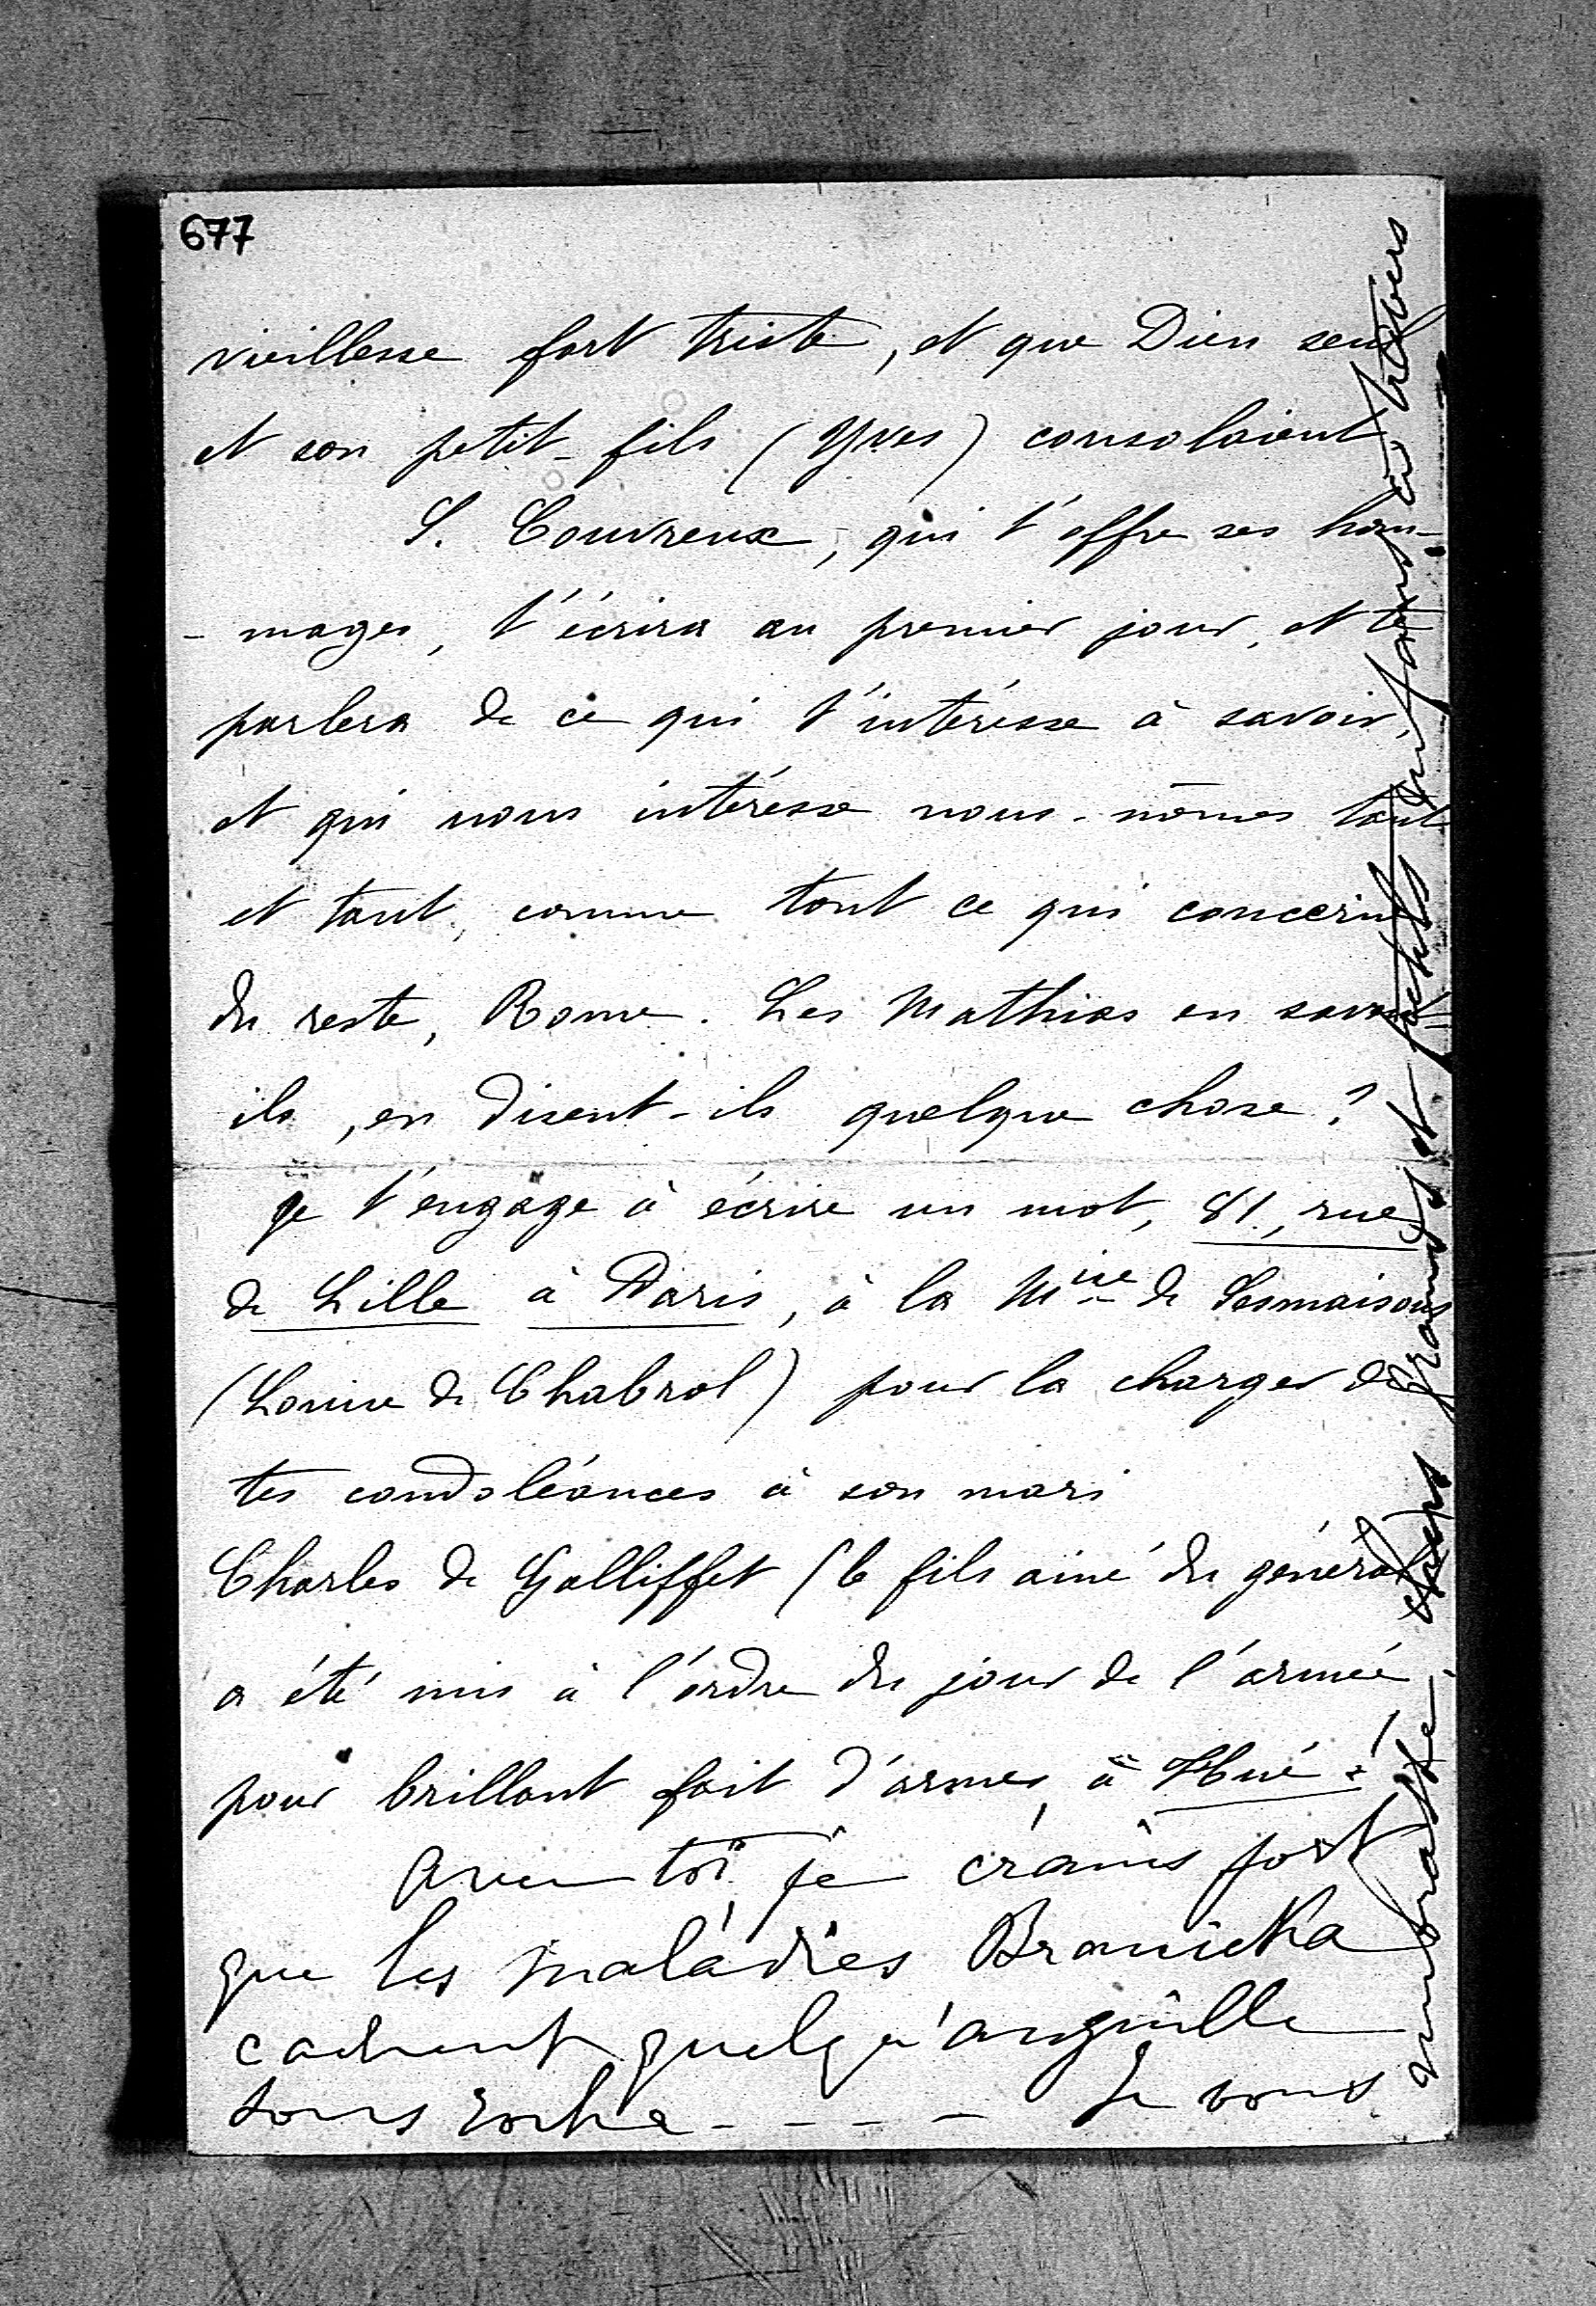 677
vieillesse fort triste, et que Dieu seul
et son petit-fils (Yves) consolaient.
S. Couvreux, qui t'offre ses hom-
- mages, t'écrira au premier jour, et te
parlera de ce qui t'intéresse à savoir,
et qui nous intéresse nous-mêmes tant
et tant, comme tout ce qui concerne
du reste, Rome. Les Mathias en savent-
ils, en disent-ils quelque chose?
Je t'engage à écrire un mot, 81, rue
de Lille à Paris, à la Mise de Sesmaisons
(Louise de Chabrol) pour la charger de
tes condoléances à son mari
Charles de Galliffet (le fils ainé du général
a été mis à l'ordre du jour de l'armée
pour brillant fait d'armes, à Hué!
Avec toi, je crains fort
que les maladies Branicka
cachent quelqu'anguille
sous roche - - - - Je vous
embrasse, chers grands et petits enfants à travers